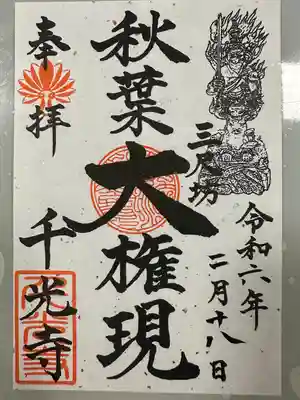 三尺坊
令和六年
二月十八日
秋葉大権現
奉拝
千光寺